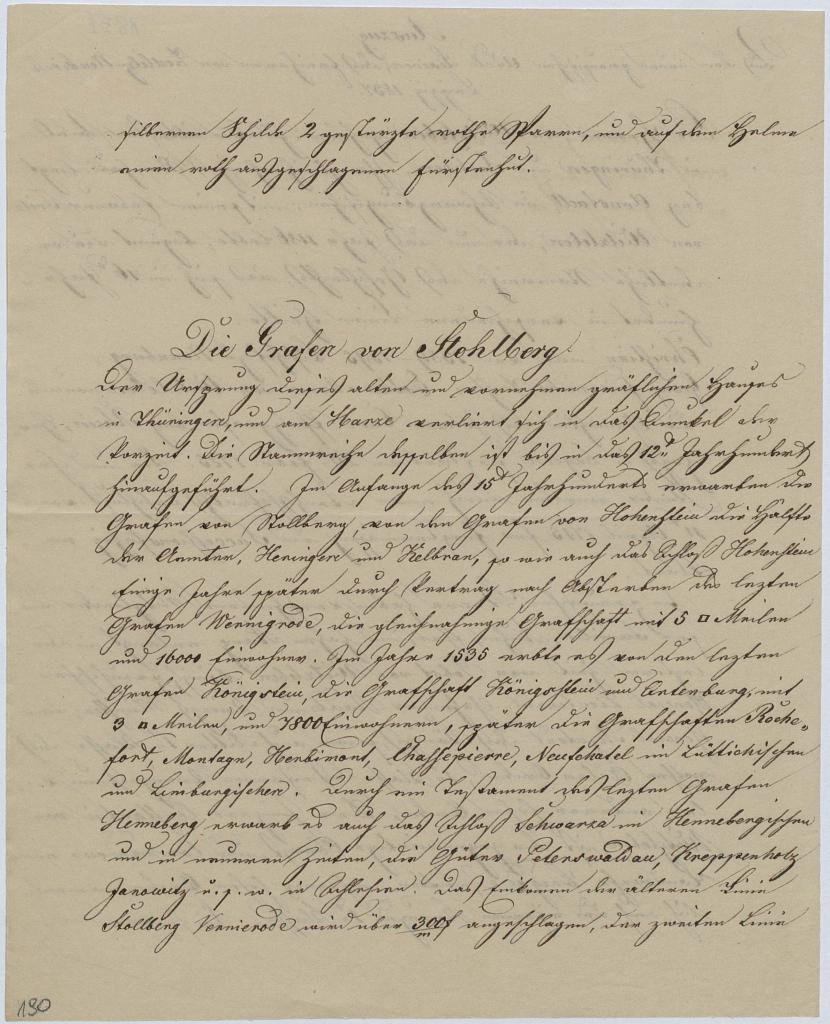 silbernen Schilde 2 gestürzte rothe Sparren, und auf dem Helme
einen roth ausgeschlagenen Fürstenhut.
Die Grafen von Stohlberg.
Der Ursprung dieses alten und vornehmen gräflichen Hauses
in Thüringen, und am Harze verliert sich in das Dunkel der
Vorzeit. Die Stammreihe desselben ist bis in das 12t Jahrhundert
hinaufgeführt. Im Anfange des 15t Jahrhunderts erwarben die
Grafen von Stollberg, von den Grafen von Hohenstein die Hälfte
der Aemter, Heringen und Kelbran, so wie auch das Schloß Hohenstein
Einige Jahre später durch Vertrag nach Absterben des lezten
Grafen Wernigrode, die gleichnahmige Grafschaft mit 5 □ Meilen
und 16000 Einwohner. Im Jahre 1535 erbte es von den lezten
Grafen Königstein, die Grafschaft Königschstein und Ortenburg, mit
3 □ Meilen, und 7800 Einwohnern, später die Grafschaften Roche-
fort, Montagn, Herbimont, Chassepierre, Neufchatel im Lüttichischen
und Limburgischen. Durch ein Testament des lezten Grafen
Henneberg erwarb es auch das Schloß Schwarza im Hennebergischen
und in neueren Zeiten, die Güter Peterswaldau, Kreppenholz
Janowitz u. s. w. in Schlesien. Das Einkomen der älteren Linie
Stollberg Vernierode wird über 300 f angeschlagen, der zweiten Linie
190